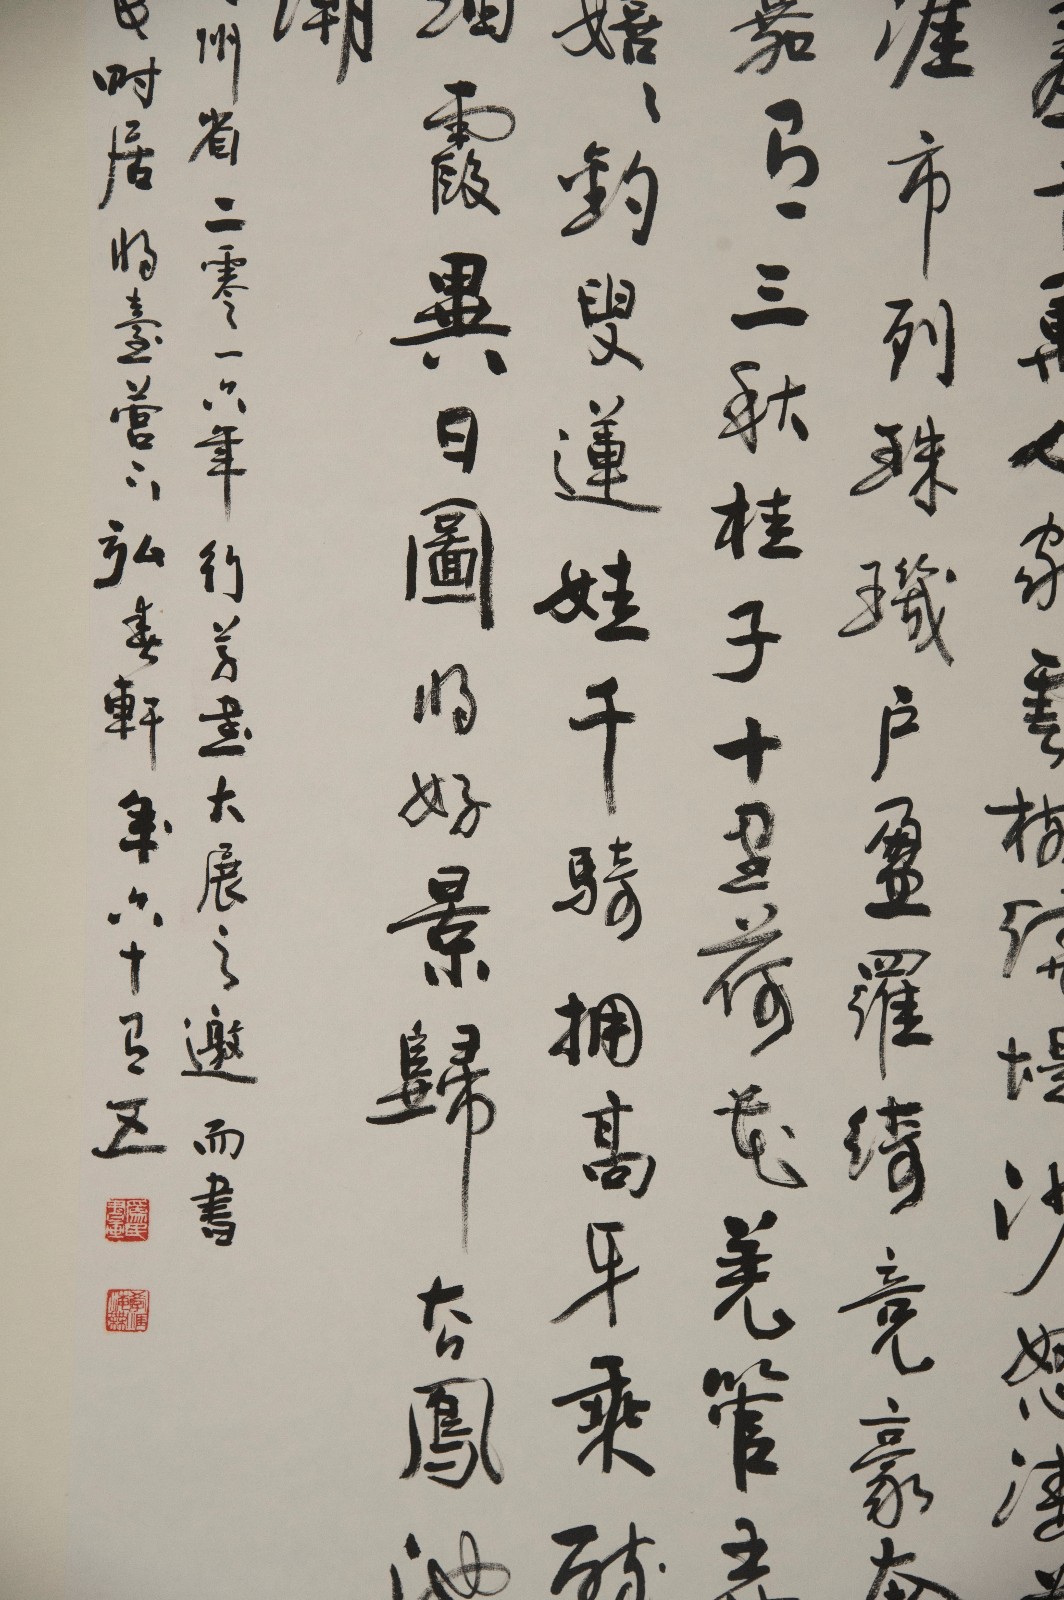 差十萬人家雲樹繞堤沙怒濤
涯市列珠璣户盈羅綺竞豪奢
嘉有三秋桂子十里荷花羌管弄
嬉嬉釣叟蓮娃千騎拥高牙乘醉
烟霞異日圖將好景歸去鳳池
潮
州省二零一六年行草書大展之邀而書
時居將臺營下弘春軒年六十有五